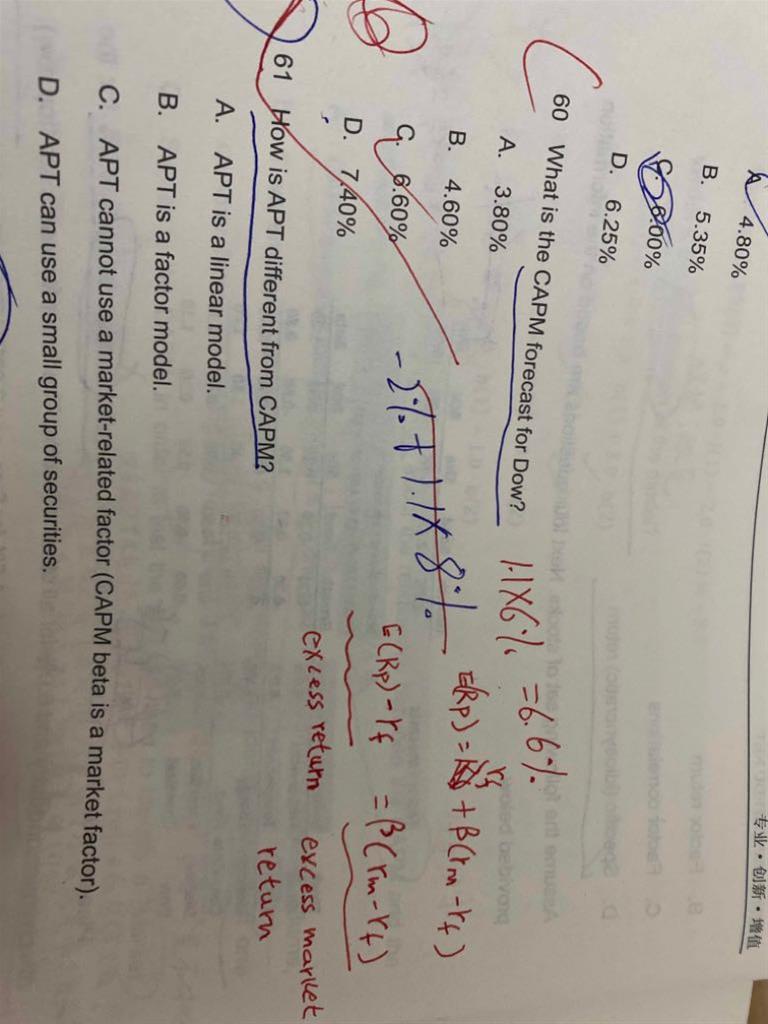 专业·创新·增值
A. 4.80%
B. 5.35%
C. 6.00%
D. 6.25%
60 What is the CAPM forecast for Dow?
1.1×6% = 6.6%
A. 3.80%
B. 4.60%
C. 6.60%
D. 7.40%
-2% + 1.1×8%
E(Rp) = rf + β(rm-rf)
E(Rp)-rf = β(rm-rf)
excess return excess market
return
61 How is APT different from CAPM?
A. APT is a linear model.
B. APT is a factor model.
C. APT cannot use a market-related factor (CAPM beta is a market factor).
D. APT can use a small group of securities.